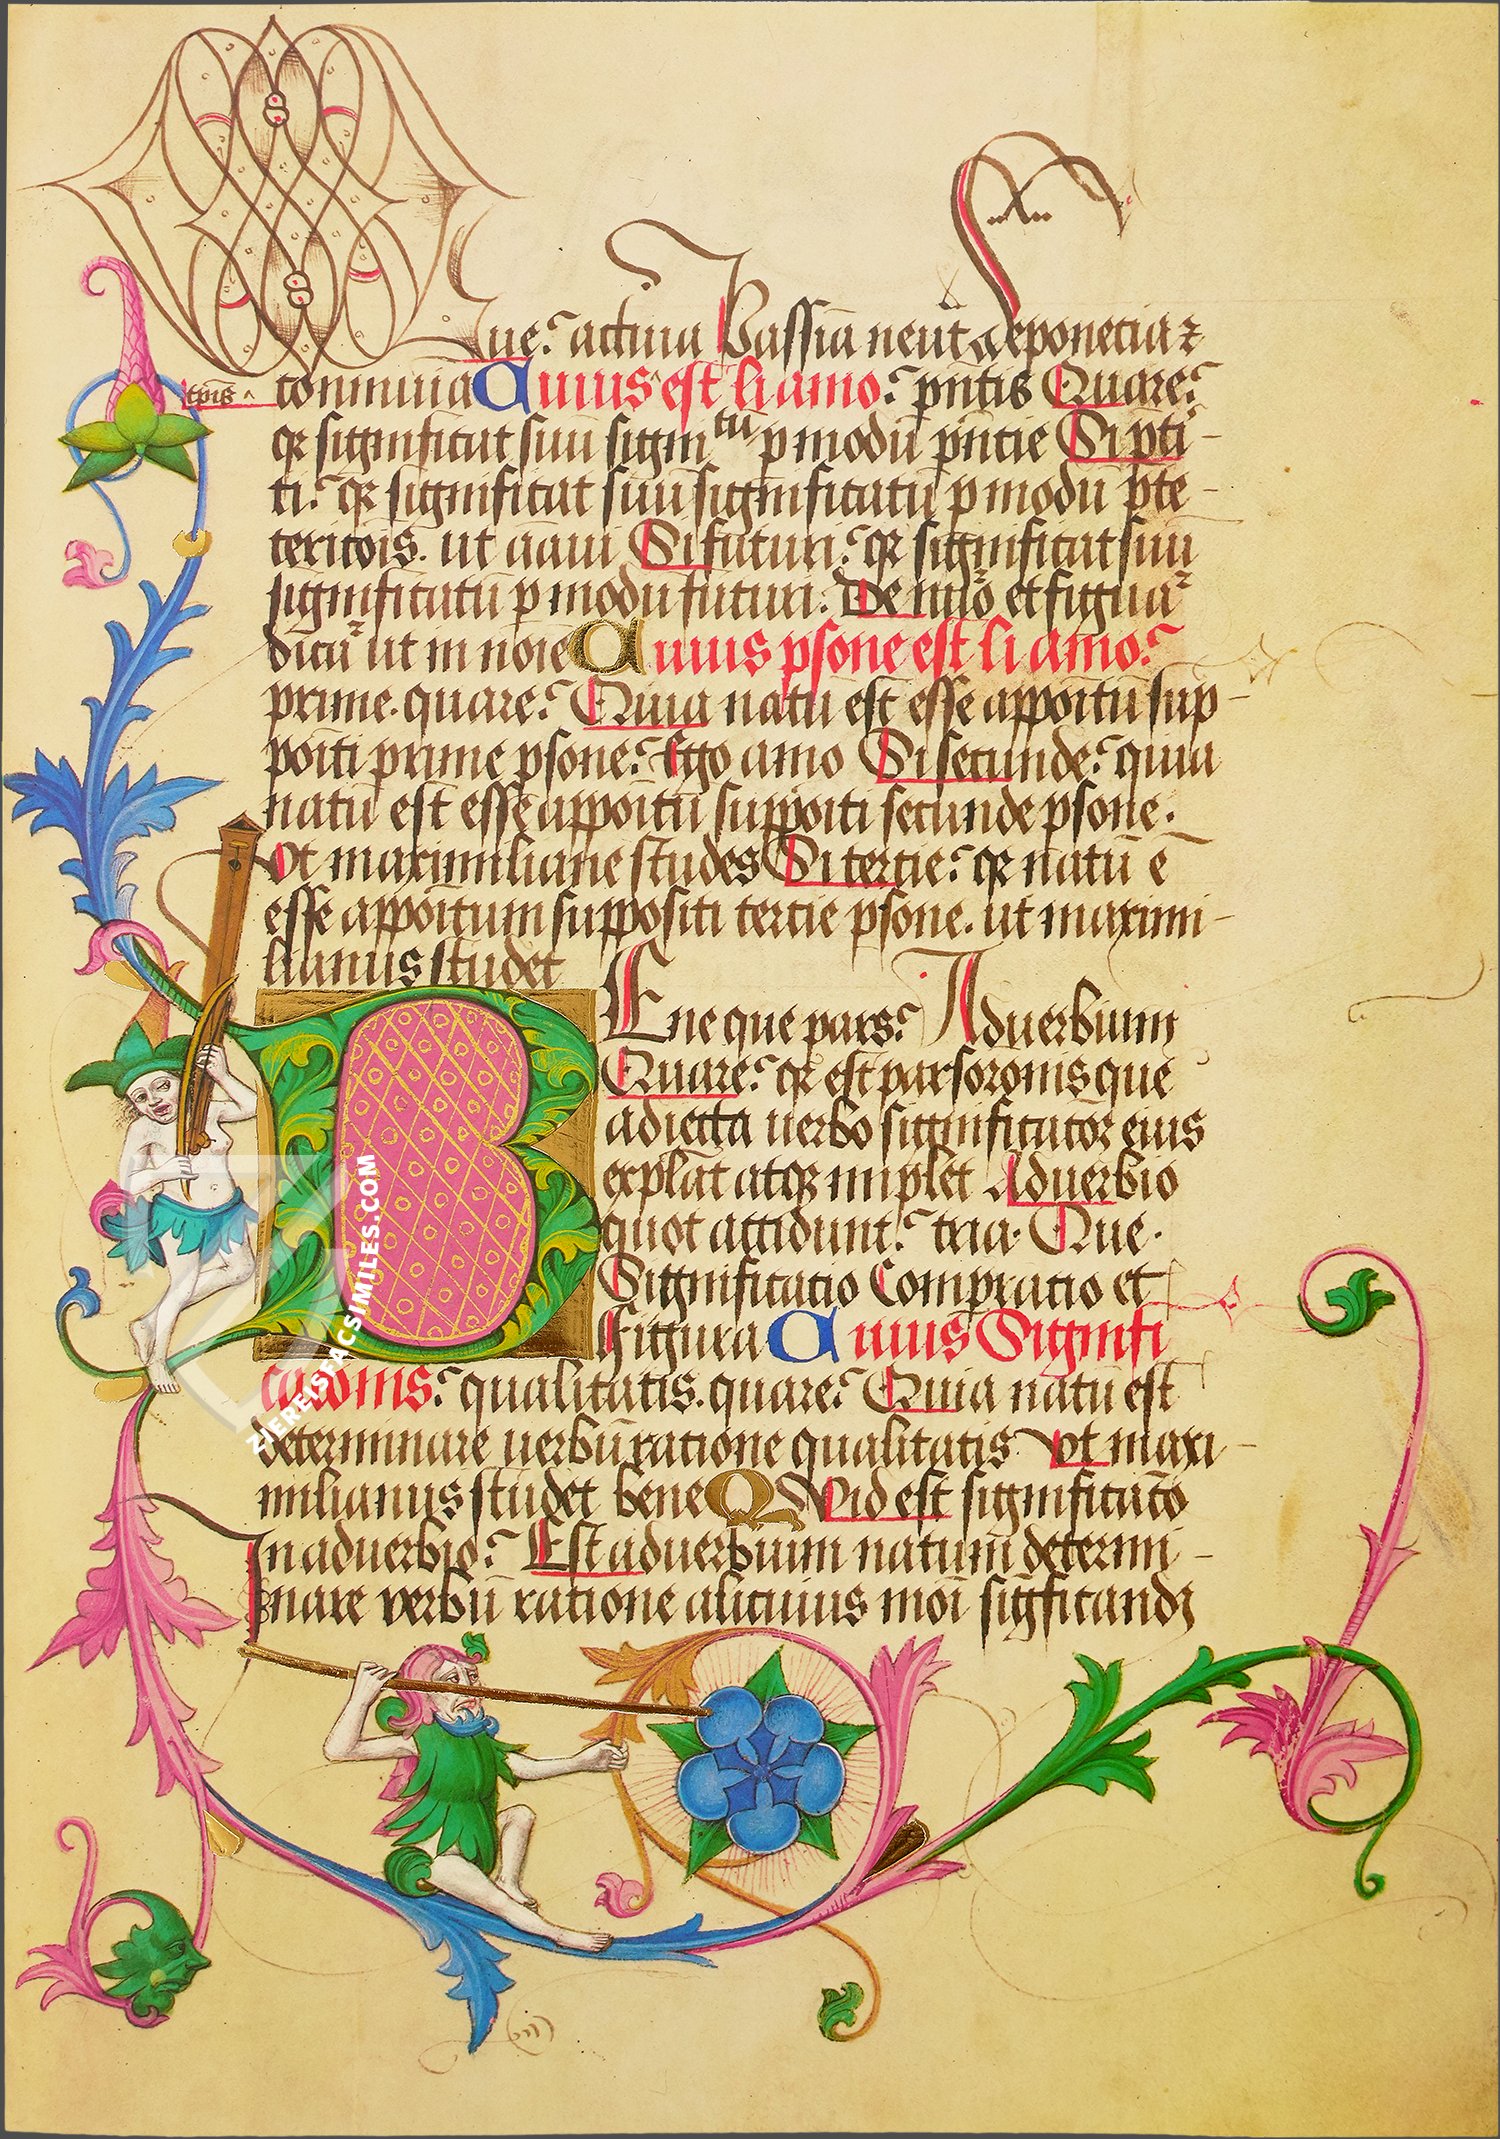 Que? actiua Passiua neut̄ deponecia ⁊
tp̄is ^ communia Cuius ^ est li amo? pn̄tis Quare?
qr significat suū signitū p modū pn̄tie Si pti-
ti? qr significat suū significatū p modū pte-
teritōis. ut aaui Si futuri? qr significat suū
significatū p modū futuri. De nūo et figura
dicit̄ ut in noīe Cuius psone est li amo?
prime. quare? Quia natū est esse appoitū sup-
poiti prime psone? Ego amo Si secunde? quia
natū est esse appoitū suppoiti secunde psone.
vt maximiliane studes Si tercie? qr natū ē
esse appoitum suppositi tercie psone. ut maximi-
lianus studet
BEne que pars? Aduerbium
Quare? qr est pars oronis que
adiecta uerbo significatōꝫ eius
explāt atqꝫ implet Aduerbio
quot accidunt? tria. Que.
Significatio Compratio et
Figura Cuius Signifi
cacōnis? qualitatis. quare? Quia natū est
determinare uerbū ratione qualitatis vt maxi-
milianus studet bene QVid est significatō
In aduerbio? Est aduerbium natum determi-
nare verbū ratione alicuius moi significandj
ZIEREISFACSIMILES.COM